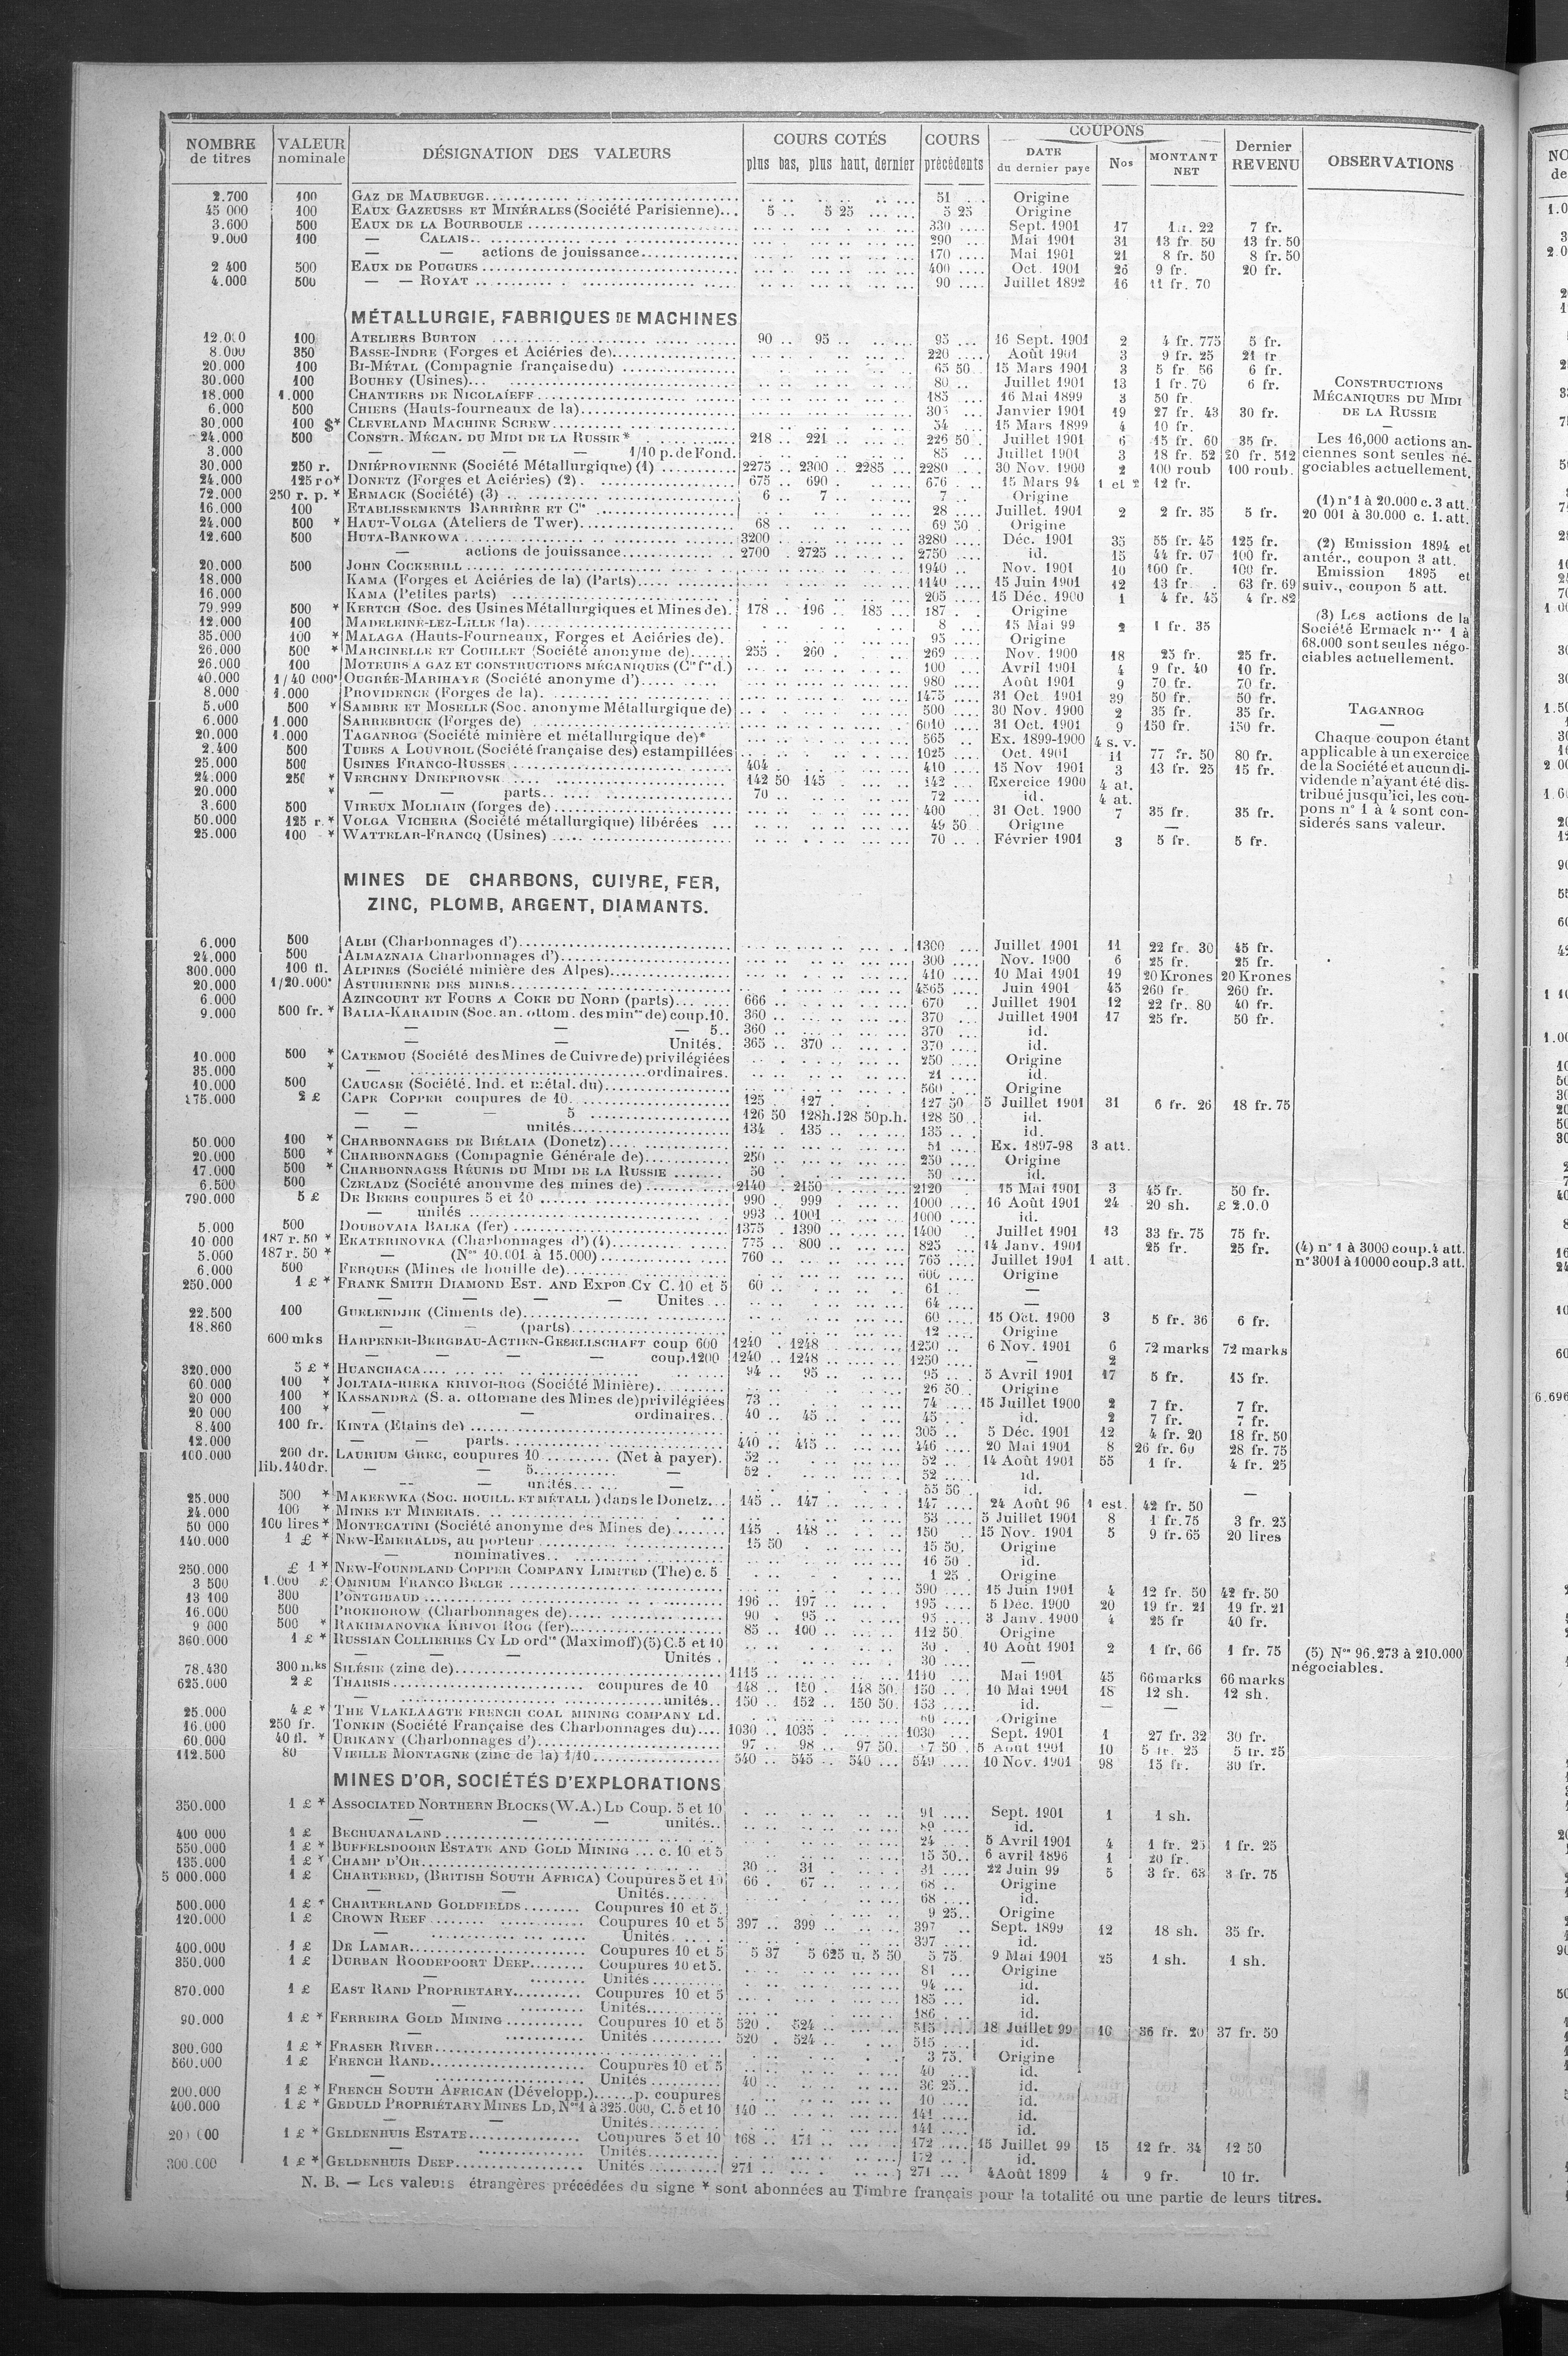 NOMBRE de titres | VALEUR nominale | DÉSIGNATION DES VALEURS | COURS COTÉS plus bas, plus haut, dernier | COURS précédents | COUPONS DATE du dernier paye | Nos | MONTANT NET | Dernier REVENU | OBSERVATIONS
2.700 100 GAZ DE MAUBEUGE 51 Origine
45 000 100 EAUX GAZEUSES ET MINÉRALES (Société Parisienne) 5 .. 5 25 5 25 Origine
3.600 500 EAUX DE LA BOURBOULE 330 Sept. 1901 17 22 7 fr.
9.000 100 — CALAIS 290 Mai 1901 31 13 fr. 50 13 fr. 50
— — actions de jouissance 170 Mai 1901 21 8 fr. 50 8 fr. 50
2 400 500 EAUX DE POUGUES 400 Oct. 1901 26 9 fr. 20 fr.
4.000 500 — — ROYAT 90 Juillet 1892 16 11 fr. 70
MÉTALLURGIE, FABRIQUES DE MACHINES
12.000 100 ATELIERS BURTON 90 .. 95 .. 95 16 Sept. 1901 2 4 fr. 775 5 fr.
8.000 350 BASSE-INDRE (Forges et Aciéries de) 220 Août 1901 3 9 fr. 25 21 fr
20.000 100 BI-MÉTAL (Compagnie française du) 65 50 15 Mars 1901 3 5 fr. 56 6 fr.
30.000 100 BOUHEY (Usines) 80 Juillet 1901 13 1 fr. 70 6 fr.
18.000 1.000 CHANTIERS DE NICOLAÏEFF 185 16 Mai 1899 3 50 fr.
6.000 500 CHIERS (Hauts-fourneaux de la) Janvier 1901 19 27 fr. 43 30 fr.
30.000 100 $* CLEVELAND MACHINE SCREW 54 15 Mars 1899 4 10 fr.
24.000 500 CONSTR. MÉCAN. DU MIDI DE LA RUSSIE * 218 .. 221 .. 226 50 Juillet 1901 6 15 fr. 60 35 fr.
3.000 — — — — 1/10 p. de Fond. 85 Juillet 1901 3 18 fr. 52 20 fr. 512
30.000 250 r. DNIÉPROVIENNE (Société Métallurgique) (1) 2275 .. 2300 .. 2285 2280 30 Nov. 1900 2 100 roub 100 roub.
24.000 125 ro* DONETZ (Forges et Aciéries) (2) 675 .. 690 676 15 Mars 94 1 et 2 12 fr.
72.000 250 r. p. * ERMACK (Société) (3) 6 7 7 Origine
16.000 100 ETABLISSEMENTS BARRIÈRE ET Cie 28 Juillet. 1901 2 2 fr. 35 5 fr.
24.000 500 * HAUT-VOLGA (Ateliers de Twer) 68 69 50 Origine
12.600 500 HUTA-BANKOWA 3200 3280 Déc. 1901 35 55 fr. 45 125 fr.
— actions de jouissance 2700 . 2725 2750 id. 15 44 fr. 07 100 fr.
20.000 500 JOHN COCKERILL 1940 Nov. 1901 10 100 fr. 100 fr.
18.000 KAMA (Forges et Aciéries de la) (Parts) 1140 15 Juin 1901 12 13 fr. 63 fr. 69
16.000 KAMA (Petites parts) 205 15 Déc. 1900 1 4 fr. 45 4 fr. 82
79.999 500 * KERTCH (Soc. des Usines Métallurgiques et Mines de). 178 .. 196 .. 185 187 Origine
12.000 100 MADELEINE-LEZ-LILLE (la) 8 15 Mai 99 2 1 fr. 35
35.000 100 * MALAGA (Hauts-Fourneaux, Forges et Aciéries de). 95 Origine
26.000 500 * MARCINELLE ET COUILLET (Société anonyme de) 255 . 260 269 Nov. 1900 18 25 fr. 25 fr.
26.000 100 MOTEURS A GAZ ET CONSTRUCTIONS MÉCANIQUES (Cie fse d.) 100 Avril 1901 4 9 fr. 40 10 fr.
40.000 1/40 000e OUGRÉE-MARIHAYE (Société anonyme d') 980 Août 1901 9 70 fr. 70 fr.
8.000 1.000 PROVIDENCE (Forges de la) 1475 31 Oct 1901 39 50 fr. 50 fr.
5.000 500 * SAMBRE ET MOSELLE (Soc. anonyme Métallurgique de) 500 30 Nov. 1900 2 35 fr. 35 fr.
6.000 1.000 SARREBRUCK (Forges de) 6010 31 Oct. 1901 9 150 fr. 150 fr.
20.000 1.000 TAGANROG (Société minière et métallurgique de)* 565 Ex. 1899-1900 4 s. v.
2.400 500 TUBES A LOUVROIL (Société française des) estampillées 1025 Oct. 1901 11 77 fr. 50 80 fr.
25.000 500 USINES FRANCO-RUSSES 404 410 15 Nov 1901 3 13 fr. 25 15 fr.
24.000 250 * VERCHNY DNIEPROVSK 142 50 145 142 Exercice 1900 4 at.
20.000 * — — parts 70 72 id. 4 at.
3.600 500 VIREUX MOLHAIN (forges de) 400 31 Oct. 1900 7 35 fr. 35 fr.
50.000 125 r. * VOLGA VICHERA (Société métallurgique) libérées 49 50 Origine —
25.000 100 * WATTELAR-FRANCQ (Usines) 70 Février 1901 3 5 fr. 5 fr.
CONSTRUCTIONS
MÉCANIQUES DU MIDI
DE LA RUSSIE
—
Les 16,000 actions an-
ciennes sont seules né-
gociables actuellement.
(1) n° 1 à 20.000 c. 3 att.
20 001 à 30.000 c. 1. att.
(2) Emission 1894 et
antér., coupon 3 att.
Emission 1895 et
suiv., coupon 5 att.
(3) Les actions de la
Société Ermack nos 1 à
68.000 sont seules négo-
ciables actuellement.
TAGANROG
—
Chaque coupon étant
applicable à un exercice
de la Société et aucun di-
vidende n'ayant été dis-
tribué jusqu'ici, les cou-
pons n° 1 à 4 sont con-
siderés sans valeur.
MINES DE CHARBONS, CUIVRE, FER,
ZINC, PLOMB, ARGENT, DIAMANTS.
6.000 500 ALBI (Charbonnages d') 1300 Juillet 1901 11 22 fr. 30 45 fr.
24.000 500 ALMAZNAIA Charbonnages d') 300 Nov. 1900 6 25 fr. 25 fr.
300.000 100 fl. ALPINES (Société minière des Alpes) 410 10 Mai 1901 19 20 Krones 20 Krones
20.000 1/20.000e ASTURIENNE DES MINES 4565 Juin 1901 45 260 fr 260 fr.
6.000 AZINCOURT ET FOURS A COKE DU NORD (parts) 666 670 Juillet 1901 12 22 fr. 80 40 fr.
9.000 500 fr. * BALIA-KARAIDIN (Soc. an. ottom. des mines de) coup. 10. 360 370 Juillet 1901 17 25 fr. 50 fr.
— — — 5.. 360 370 id.
— — Unités. 365 .. 370 370 id.
10.000 500 * CATEMOU (Société des Mines de Cuivre de) privilégiées 250 Origine
35.000 * — ordinaires. 21 id.
10.000 500 CAUCASE (Société. Ind. et métal. du) 560 Origine
175.000 2 £ CAPE COPPER coupures de 10 125 . 127 127 50 5 Juillet 1901 31 6 fr. 26 18 fr. 75
— — — 5 126 50 128h. 128 50p.h. 128 50 id.
— — unités 134 . 135 135 id.
50.000 100 * CHARBONNAGES DE BIÉLAIA (Donetz) 51 Ex. 1897-98 3 att.
20.000 500 * CHARBONNAGES (Compagnie Générale de) 250 250 Origine
17.000 500 * CHARBONNAGES RÉUNIS DU MIDI DE LA RUSSIE 50 50 id.
6.500 500 CZELADZ (Société anonyme des mines de) 2140 . 2150 2120 15 Mai 1901 3 45 fr. 50 fr.
790.000 5 £ DE BEERS coupures 5 et 10 990 . 999 1000 16 Août 1901 24 20 sh. £ 2.0.0
— unités 993 . 1001 1000 id.
5.000 500 DOUBOVAIA BALKA (fer) 1375 . 1390 1400 Juillet 1901 13 33 fr. 75 75 fr.
10 000 187 r. 50 * EKATERINOVKA (Charbonnages d') (4) 775 .. 800 825 14 Janv. 1901 25 fr. 25 fr. (4) n° 1 à 3000 coup. 4 att.
5.000 187 r. 50 * — (Nos 10.001 à 15.000) 760 765 Juillet 1901 1 att. n° 3001 à 10000 coup. 3 att.
6.000 500 FERQUES (Mines de houille de) 600 Origine
250.000 1 £ * FRANK SMITH DIAMOND EST. AND EXPon CY C. 10 et 5 60 61 —
— — — — Unites 64 —
22.500 100 GUELENDJIK (Ciments de) 60 15 Oct. 1900 3 5 fr. 36 6 fr.
18.860 — — (parts) 12 Origine
600 mks HARPENER-BERGBAU-ACTIEN-GESELLSCHAFT coup 600 1240 . 1248 1250 6 Nov. 1901 6 72 marks 72 marks
— — — — coup. 1200 1240 .. 1248 1250 — 2
320.000 5 £ * HUANCHACA 94 .. 95 95 5 Avril 1901 17 5 fr. 15 fr.
60.000 100 * JOLTAIA-RIEKA KRIVOI-ROG (Société Minière) 26 50 Origine
20 000 100 * KASSANDRA (S. a. ottomane des Mines de) privilégiées 73 74 15 Juillet 1900 2 7 fr. 7 fr.
20 000 100 * — — ordinaires 40 .. 45 45 id. 2 7 fr. 7 fr.
8.400 100 fr. KINTA (Etains de) 305 5 Déc. 1901 12 4 fr. 20 18 fr. 50
12.000 — — parts 440 .. 445 446 20 Mai 1901 8 26 fr. 60 28 fr. 75
100.000 200 dr. LAURIUM GREC, coupures 10 (Net à payer). 52 52 14 Août 1901 55 1 fr. 4 fr. 25
lib. 140 dr. — — 5 — 52 52 id.
— — unités — 55 50 id. —
25.000 500 * MAKEEWKA (SOC. HOUILL. ET MÉTALL) dans le Donetz 145 .. 147 147 24 Août 96 1 est. 42 fr. 50
24.000 100 * MINES ET MINERAIS 53 5 Juillet 1901 8 1 fr. 75 3 fr. 25
50 000 100 lires * MONTECATINI (Société anonyme des Mines de) 145 . 148 150 15 Nov. 1901 5 9 fr. 65 20 lires
140.000 1 £ * NEW-EMERALDS, au porteur 15 50 15 50 Origine
— nominatives 16 50 id.
250.000 £ 1 * NEW-FOUNDLAND COPPER COMPANY LIMITED (The) c. 5 1 25 Origine
3 500 1.000 £ OMNIUM FRANCO BELGE 590 15 Juin 1901 4 12 fr. 50 42 fr. 50
13 100 300 PONTGIBAUD 196 .. 197 195 5 Déc. 1900 20 19 fr. 21 19 fr. 21
16.000 500 PROKHOROW (Charbonnages de) 90 . 95 95 3 Janv. 1900 4 25 fr 40 fr.
9 000 500 * RAKHMANOVKA KRIVOI ROG (fer) 85 .. 100 112 50 Origine
360.000 1 £ * RUSSIAN COLLIERIES CY LD ordres (Maximoff) (5) C. 5 et 10 30 10 Août 1901 2 1 fr, 66 1 fr. 75 (5) Nos 96.273 à 210.000
— — — Unités 30 — négociables.
78.430 300 mks SILÉSIE (zinc de) 1115 1110 Mai 1901 45 66 marks 66 marks
625.000 2 £ THARSIS coupures de 10 148 .. 150 . 148 50 150 10 Mai 1901 18 12 sh. 12 sh.
— unités 150 .. 152 .. 150 50 153 id. — —
25.000 4 £ * THE VLAKLAAGTE FRENCH COAL MINING COMPANY Ld. 60 Origine
16.000 250 fr. TONKIN (Société Française des Charbonnages du) 1030 .. 1035 1030 Sept. 1901 1 27 fr. 32 30 fr.
60.000 40 fl. * URIKANY (Charbonnages d') 97 .. 98 .. 97 50 7 50 5 Août 1901 10 5 fr. 25 5 fr. 25
112.500 80 VIEILLE MONTAGNE (zinc de la) 1/10 540 .. 545 .. 540 549 10 Nov. 1901 98 15 fr. 30 fr.
MINES D'OR, SOCIÉTÉS D'EXPLORATIONS
350.000 1 £ * ASSOCIATED NORTHERN BLOCKS (W.A.) LD Coup. 5 et 10 91 Sept. 1901 1 1 sh.
— — — unités 89 id.
400 000 1 £ BECHUANALAND 24 5 Avril 1901 4 1 fr. 25 1 fr. 25
550.000 1 £ * BUFFELSDOORN ESTATE AND GOLD MINING c. 10 et 5 15 50 6 avril 1896 1 20 fr.
135.000 1 £ * CHAMP D'OR 30 .. 31 31 22 Juin 99 5 3 fr. 63 3 fr. 75
5 000.000 1 £ CHARTERED, (BRITISH SOUTH AFRICA) Coupures 5 et 10 66 . 67 68 Origine
— — Unités 68 id.
500.000 1 £ * CHARTERLAND GOLDFIELDS Coupures 10 et 5. 9 25 Origine
120.000 1 £ CROWN REEF Coupures 10 et 5 397 .. 399 397 Sept. 1899 12 18 sh. 35 fr.
— Unités 397 id.
400.000 1 £ DE LAMAR Coupures 10 et 5 5 37 5 625 u. 5 50 5 75 9 Mai 1901 25 1 sh. 1 sh.
350.000 1 £ DURBAN ROODEPOORT DEEP Coupures 10 et 5. 81 Origine
— Unités 94 id.
870.000 1 £ EAST RAND PROPRIETARY Coupures 10 et 5 185 id.
— Unités 186 id.
90.000 1 £ * FERREIRA GOLD MINING Coupures 10 et 5 520 . 524 515 18 Juillet 99 16 36 fr. 20 37 fr. 50
— Unités 520 . 524 515 id.
300.000 1 £ * FRASER RIVER 3 75 Origine
560.000 1 £ FRENCH RAND Coupures 10 et 5 40 id.
— Unités 40 36 25 id.
200.000 1 £ * FRENCH SOUTH AFRICAN (Développ.) p. coupures 10 id.
400.000 1 £ * GEDULD PROPRIÉTARY MINES LD, Nos 1 à 325.000, C. 5 et 10 140 141 id.
— — Unités 141 id.
1 £ * GELDENHUIS ESTATE Coupures 5 et 10 168 .. 171 172 15 Juillet 99 15 12 fr. 34 12 50
— Unités 172 id.
300.000 1 £ * GELDENHUIS DEEP Unités 271 271 4 Août 1899 4 9 fr. 10 fr.
N. B. — Les valeurs étrangères précédées du signe * sont abonnées au Timbre français pour la totalité ou une partie de leurs titres.